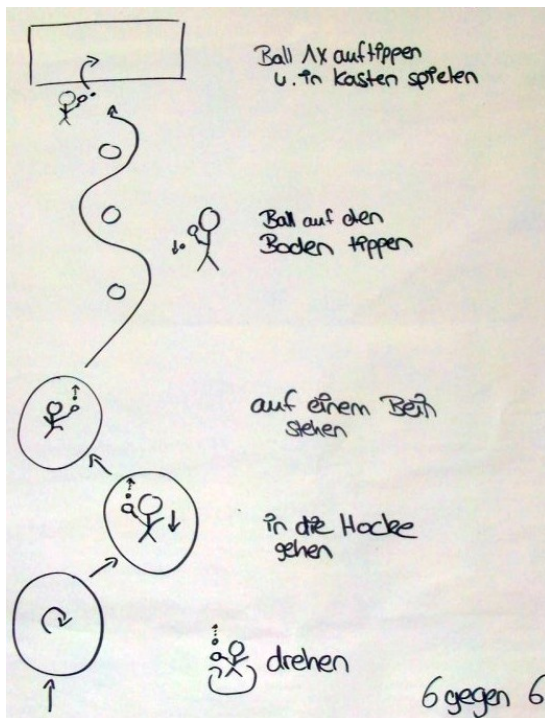 Ball 1x auftippen
u. in Kasten spielen
Ball auf den
Boden tippen
auf einem Bein
stehen
in die Hocke
gehen
drehen
6 gegen 6